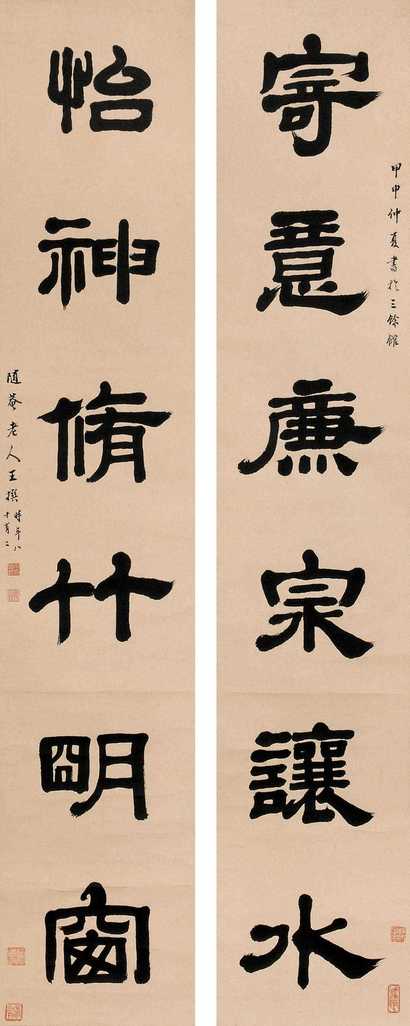 甲申仲夏書於三餘館
寄意廉泉讓水
怡神脩竹明窗
隨菴老人王撰時年八十有二